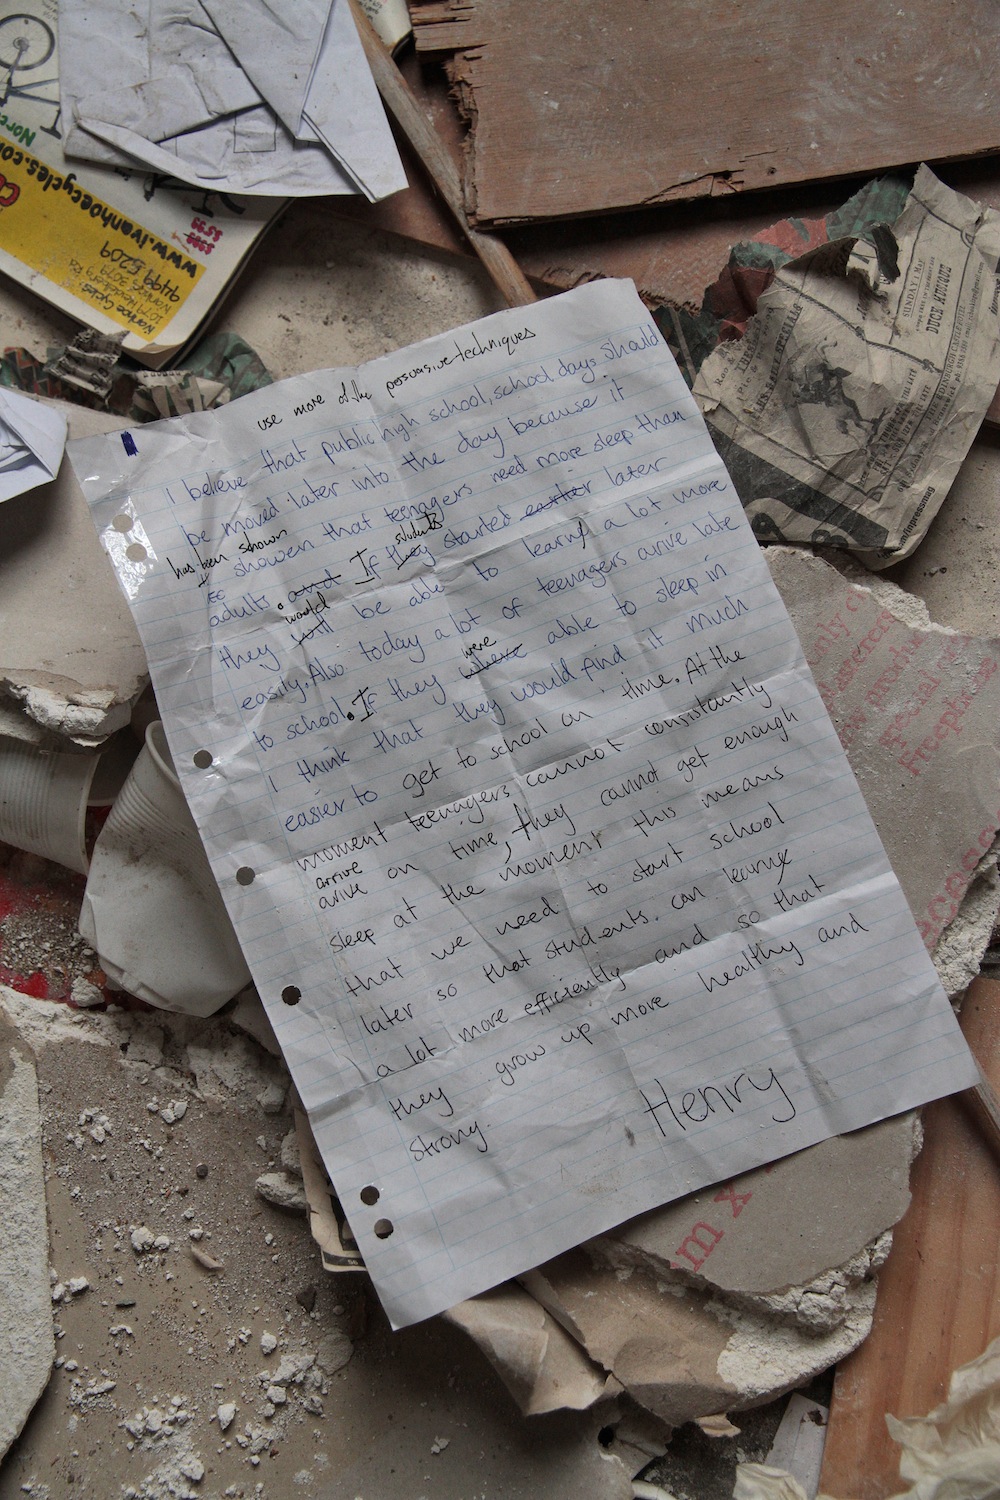 use more of the persuasive techniques
I believe that public high school, school days should
be moved later into the day because it
has been shown
showen that teenagers need more sleep than
adults. and If they students started earlier later
they will would be able to learn a lot more
easily. Also today a lot of teenagers arrive late
to school. If they where were able to sleep in
I think that they would find it much
easier to get to school on time. At the
moment teenagers cannot consistantly
arrive
arive on time, they cannot get enough
sleep at the moment this means
that we need to start school
later so that students. can learn
a lot more efficiently and so that
they grow up more healthy and
strong.
Henry
www.ivanhoecycles.com
9499 5209
SUNDAY 1 MAY
DUCK